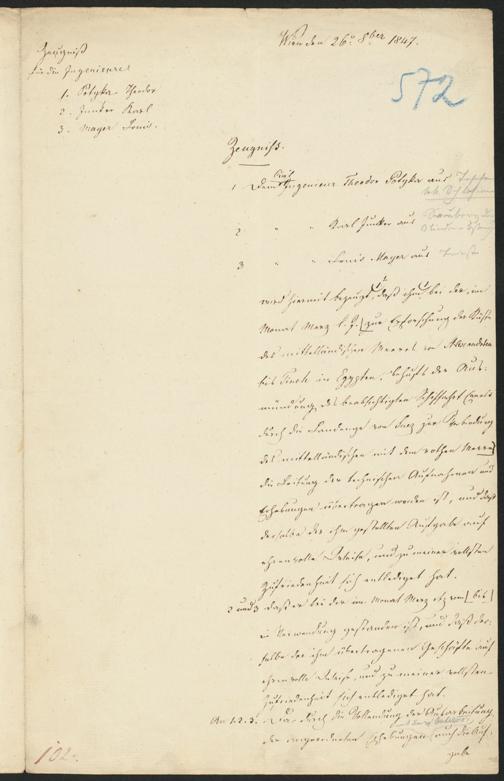 Wien den 26n 8ber 1847.
572
Zeugniß
für die Ingenieure
1. Potyka Theodor
2. Junker Karl
3. Mayer Louis.
Zeugniß.
1 Dem Ingenieur Theodor Potyka aus
2 " " Karl Junker aus
3 " " Louis Mayer aus Triest
wird hiermit bezeugt, daß ihm bei der, im
Monat Merz l. J. [zur Erforschung der Küste
des mittelländischen Meeres von Alexandrien
bis in Egypten, behufs der Aus-
mündung des beabsichtigten Schiffahrt Canals
durch die Landenge von Suez zur Verbindung
des mittelländischen mit dem rothen Meere]
die Leitung der technischen Aufnahmen und
Erhebungen übertragen worden ist, und daß
derselbe die ihm gestellten Aufgabe auf
ehrenvolle Weise, und zu meiner vollsten
Zufriedenheit sich entlediget hat.
2 und 3 daß er bei der im Monat Merz etz von [bis]
in Verwendung gestanden ist, und daß der-
selbe der ihm übertragenen Geschäfte auf
ehrenvolle Weise, und zu meiner vollsten
Zufriedenheit sich entlediget hat.
An 1. 2. 3. Die durch die Vollendung der Ausarbeitung
der angeordneten Erhebungen auch die Auf-
gabe
102.